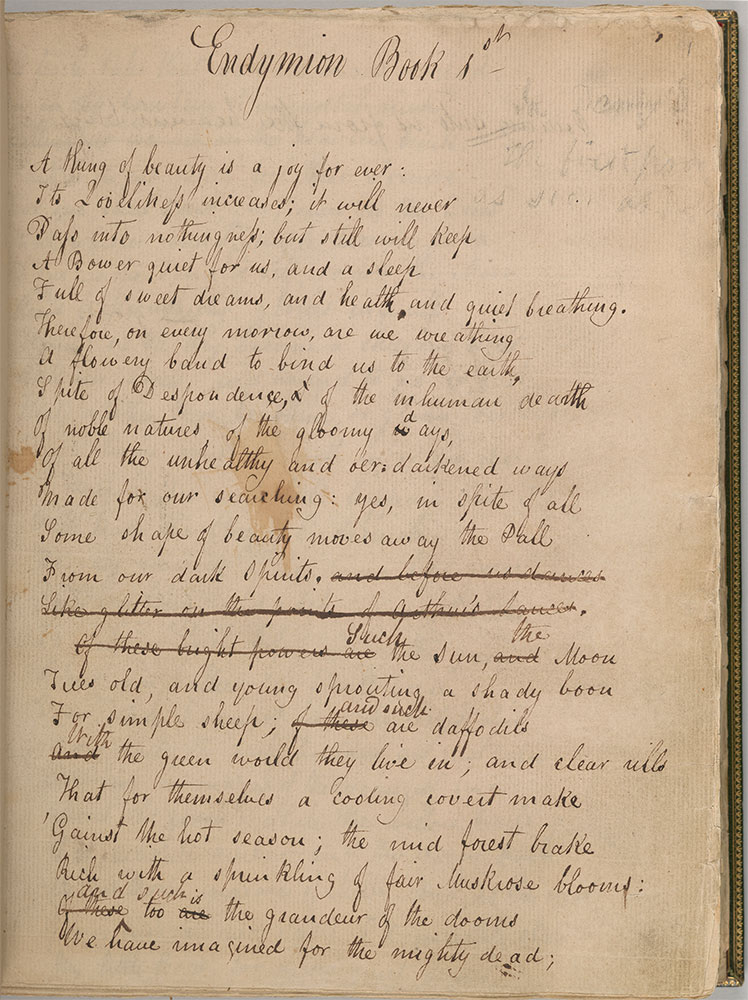 Endymion Book 1st
A thing of beauty is a joy for ever:
Its Loveliness increases; it will never
Pass into nothingness; but still will keep
A Bower quiet for us, and a sleep
Full of sweet dreams, and health, and quiet breathing.
Therefore, on every morrow, are we wreathing
A flowery band to bind us to the earth,
Spite of Despondence, of the inhuman dearth
Of noble natures, of the gloomy days,
Of all the unhealthy and oer-darkened ways
Made for our searching: yes, in spite of all
Some shape of beauty moves away the Pall
From our dark Spirits. and before us dances
Like glitter on the points of Arthur's Lances.
Of these bright powers are Such the Sun, and the Moon
Trees old, and young sprouting a shady boon
For simple sheep; of these and such are daffodils
and With the green world they live in; and clear rills
That for themselves a cooling covert make
'Gainst the hot season; the mid forest brake
Rich with a sprinkling of fair Muskrose blooms:
Of these and such too are is the grandeur of the dooms
We have imagined for the mighty dead;